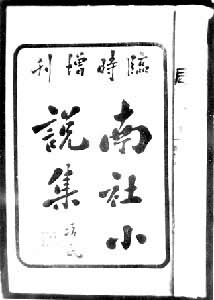 臨時增刊
南社小
說集